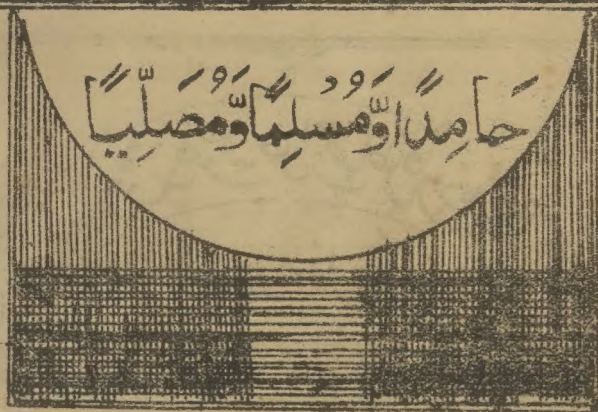 حَامِدًا وَّمُسْلِمًا وَّمُصَلِّيًا